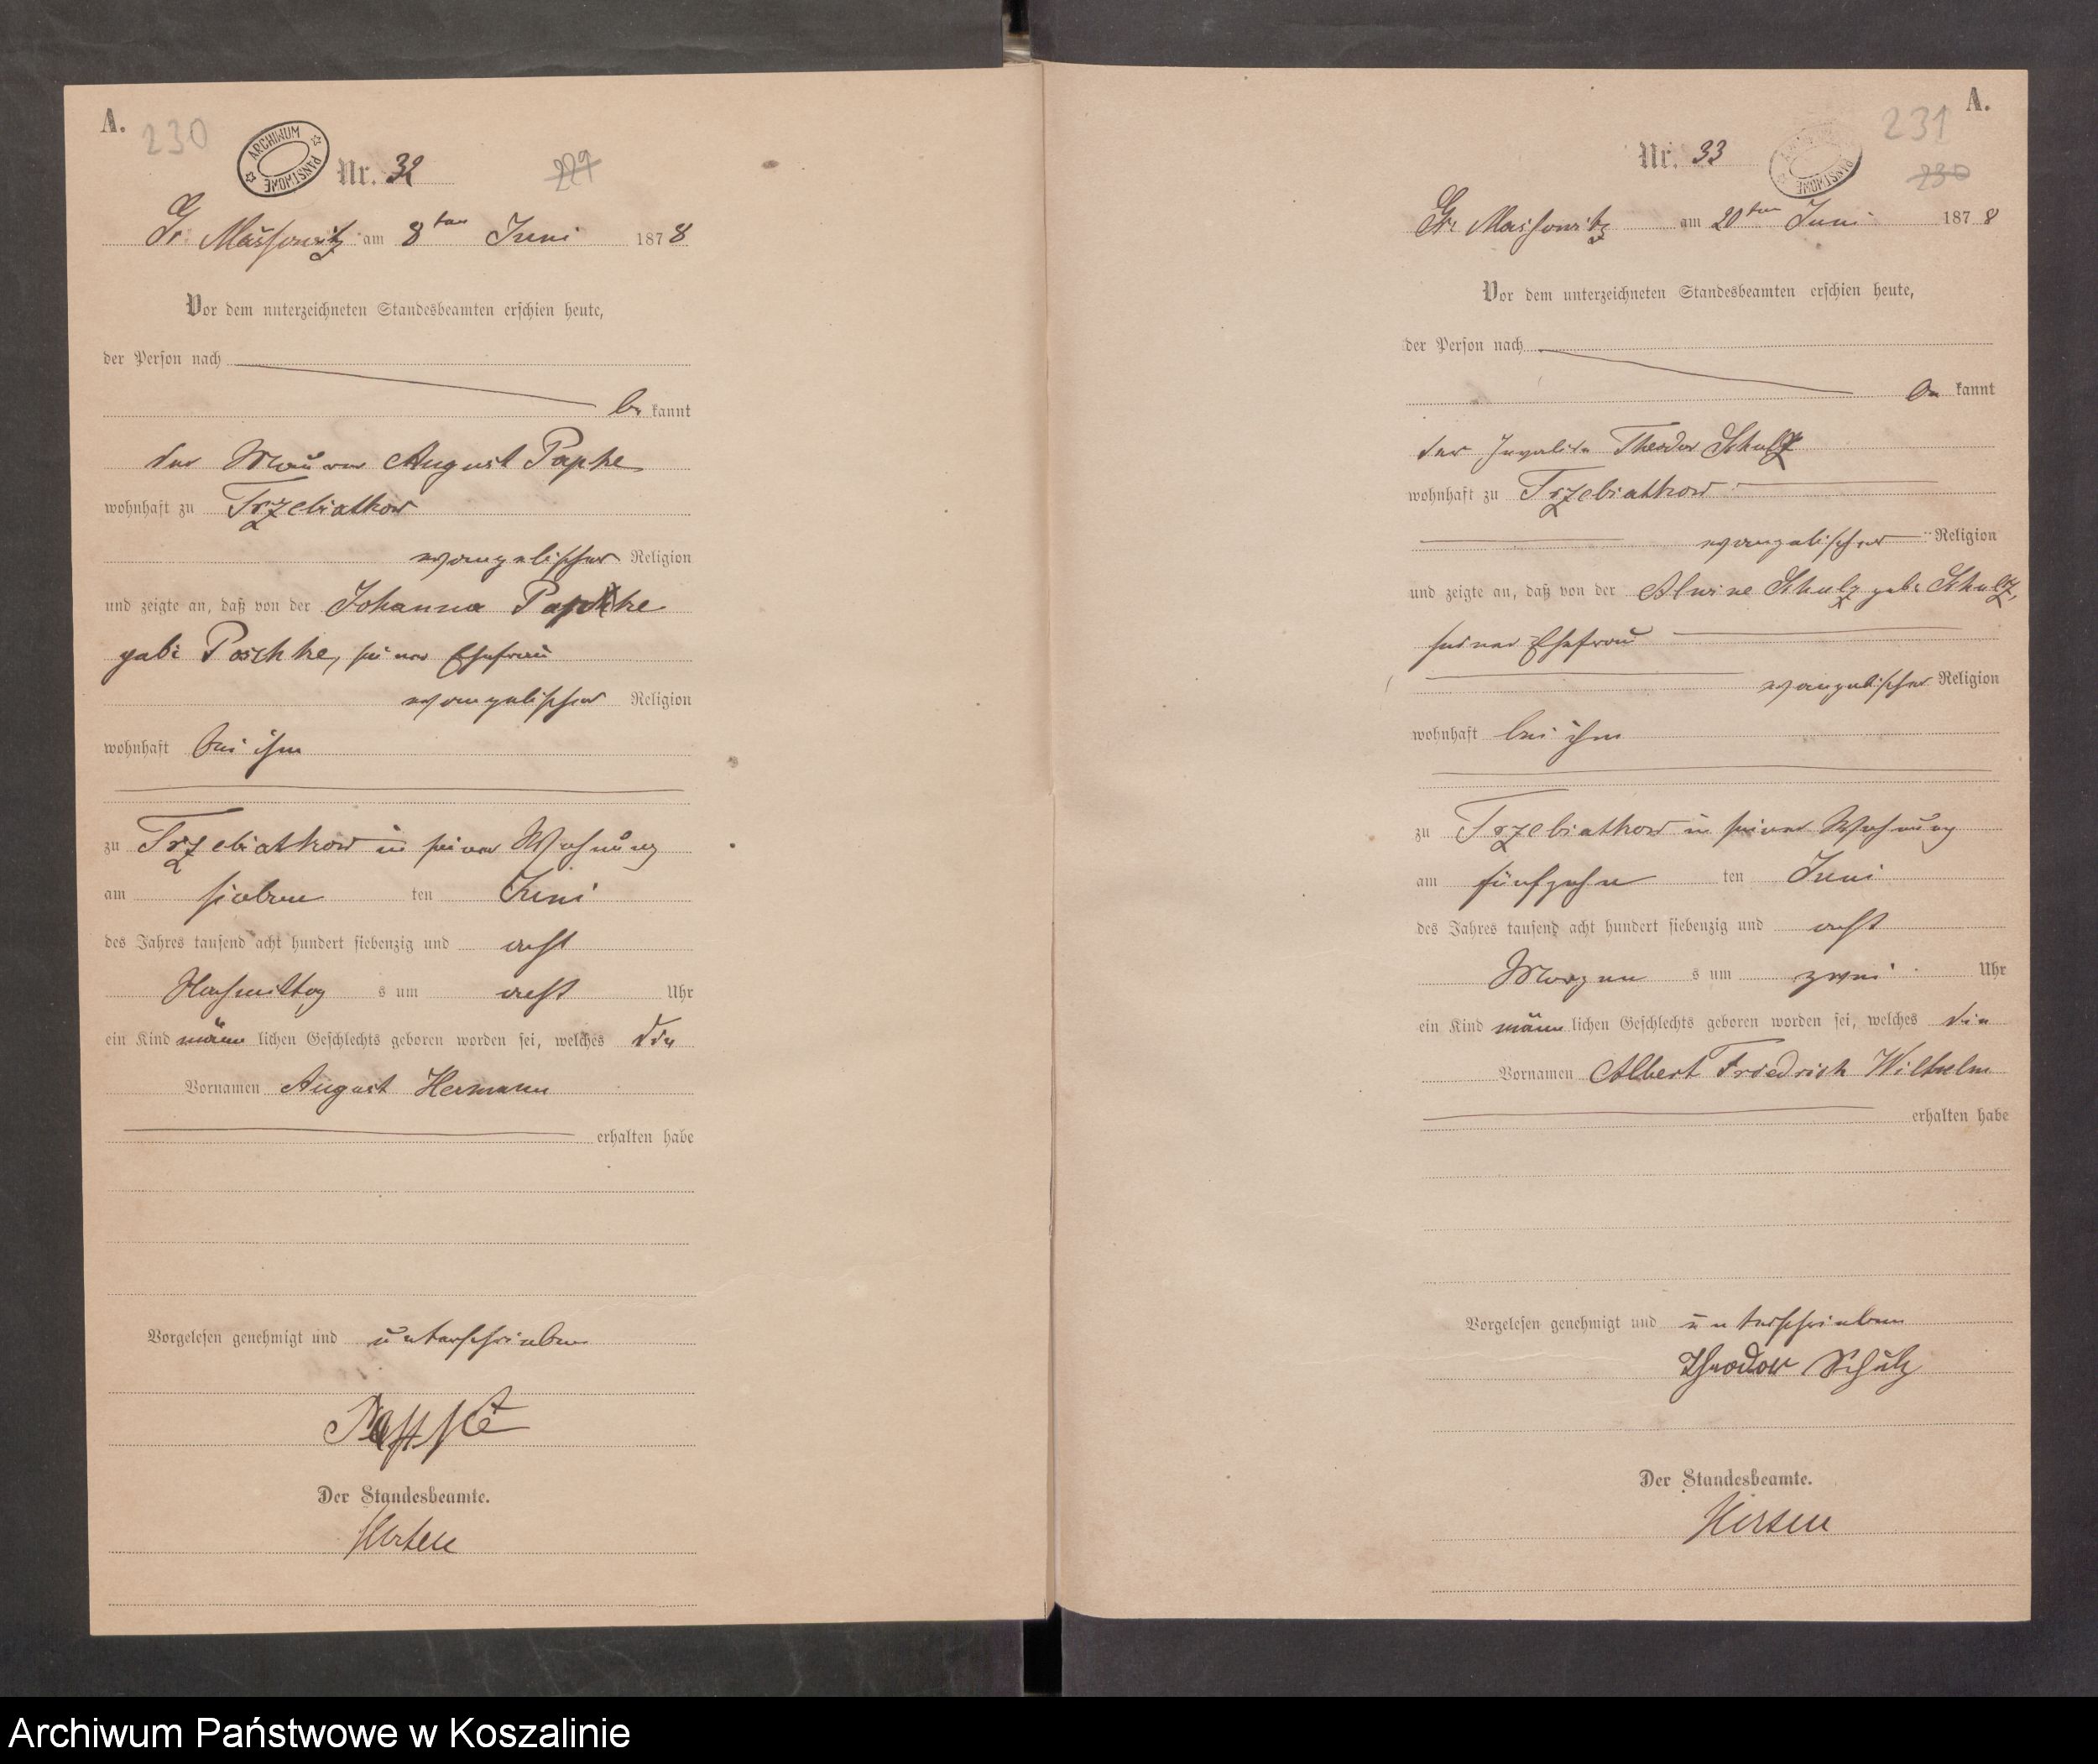 A.
230
ARCHIWUM PAŃSTWOWE
Nr. 32
229
Gr. Massowitz am 8ten Juni 1878
Vor dem unterzeichneten Standesbeamten erschien heute,
der Person nach
be kannt
der Maurer August Papke
wohnhaft zu Trzebiatkow
evangelischer Religion
und zeigte an, daß von der Johanna Papke
geb: Poschke, seiner Ehefrau
evangelischer Religion
wohnhaft bei ihm
zu Trzebiatkow in seiner Wohnung
am sieben ten Juni
des Jahres tausend acht hundert siebenzig und acht
Nachmittag s um acht Uhr
ein Kind männ lichen Geschlechts geboren worden sei, welches die
Vornamen August Hermann
erhalten habe
Vorgelesen genehmigt und unterschrieben
Der Standesbeamte.
A.
231
Nr. 33
ARCHIWUM PAŃSTWOWE
230
Gr. Massowitz am 20ten Juni 1878
Vor dem unterzeichneten Standesbeamten erschien heute,
der Person nach
be kannt
der Invalide Theodor Schulz
wohnhaft zu Trzebiatkow
evangelischer Religion
und zeigte an, daß von der Alwine Schulz geb: Schulz,
seiner Ehefrau
evangelischer Religion
wohnhaft bei ihm
zu Trzebiatkow in seiner Wohnung
am fünfzehn ten Juni
des Jahres tausend acht hundert siebenzig und acht
Morgen s um zwei Uhr
ein Kind männ lichen Geschlechts geboren worden sei, welches die
Vornamen Albert Friedrich Wilhelm
erhalten habe
Vorgelesen genehmigt und unterschrieben
Theodor Schulz
Der Standesbeamte.
Archiwum Państwowe w Koszalinie